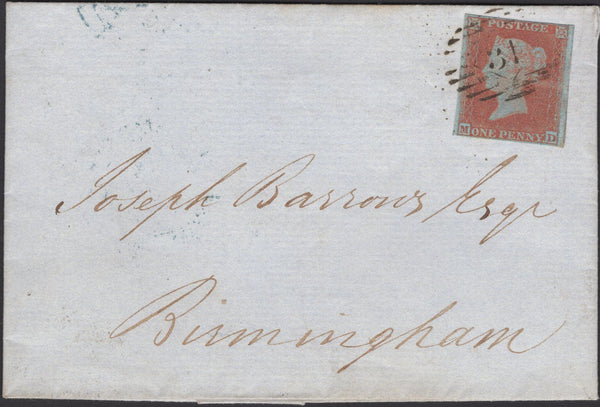 POSTAGE
31
M ONE PENNY D
Joseph Barrows Esqr
Birmingham